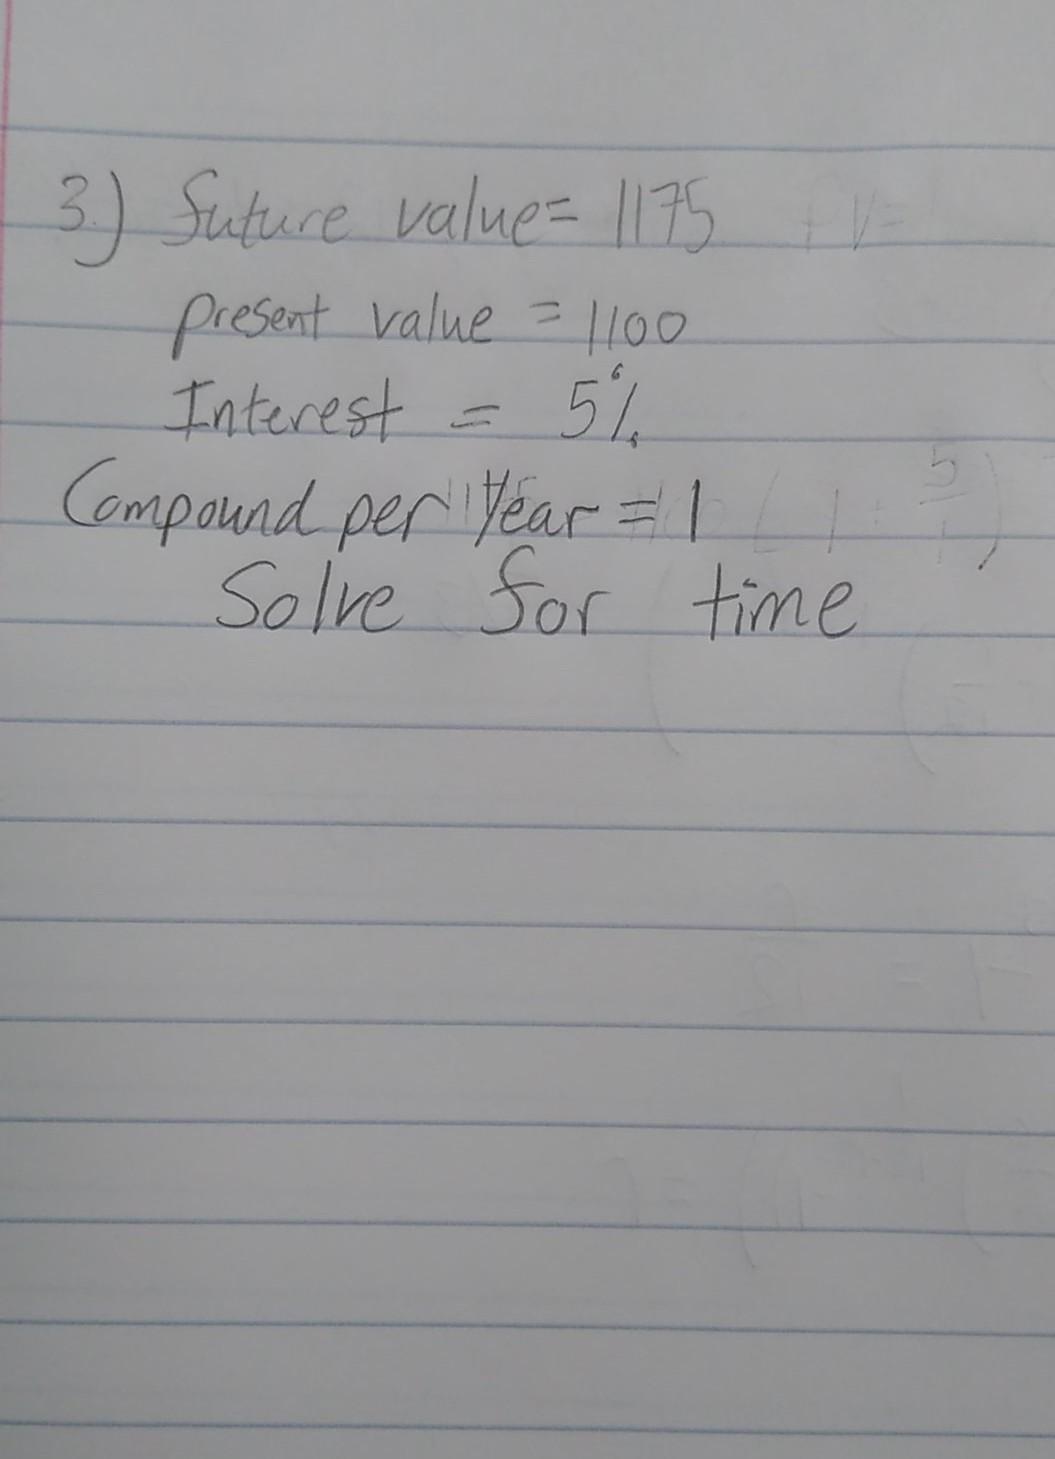 3.) future value= 1175
present value = 1100
Interest = 5%
Compound per Year = 1
Solve for time